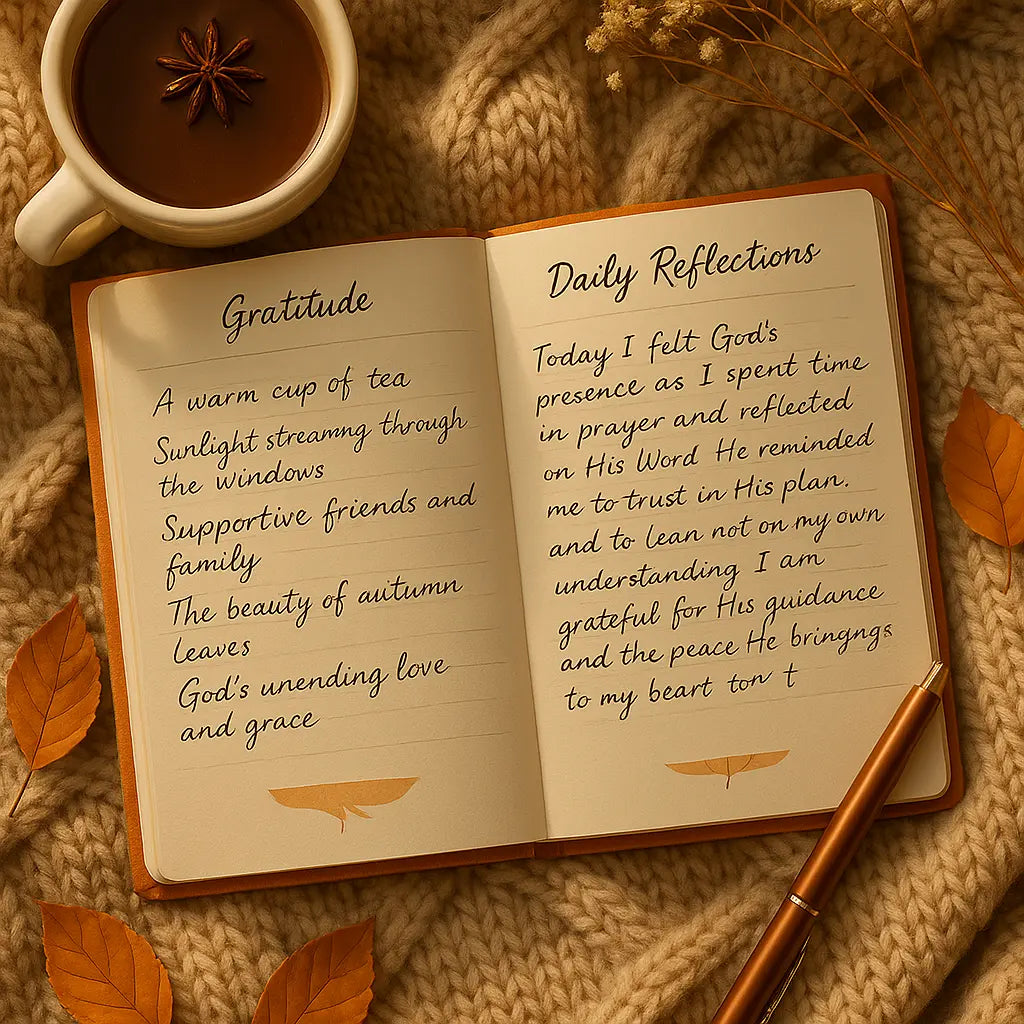 Gratitude
A warm cup of tea
Sunlight streamng through
the windows
Supportive friends and
family
The beauty of autumn
leaves
God's unending love
and grace
Daily Reflections
Today I felt God's
presence as I spent time
in prayer and reflected
on His Word He reminded
me to trust in His plan.
and to lean not on my own
understanding I am
grateful for His guidance
and the peace He bringngs
to my beart ton t